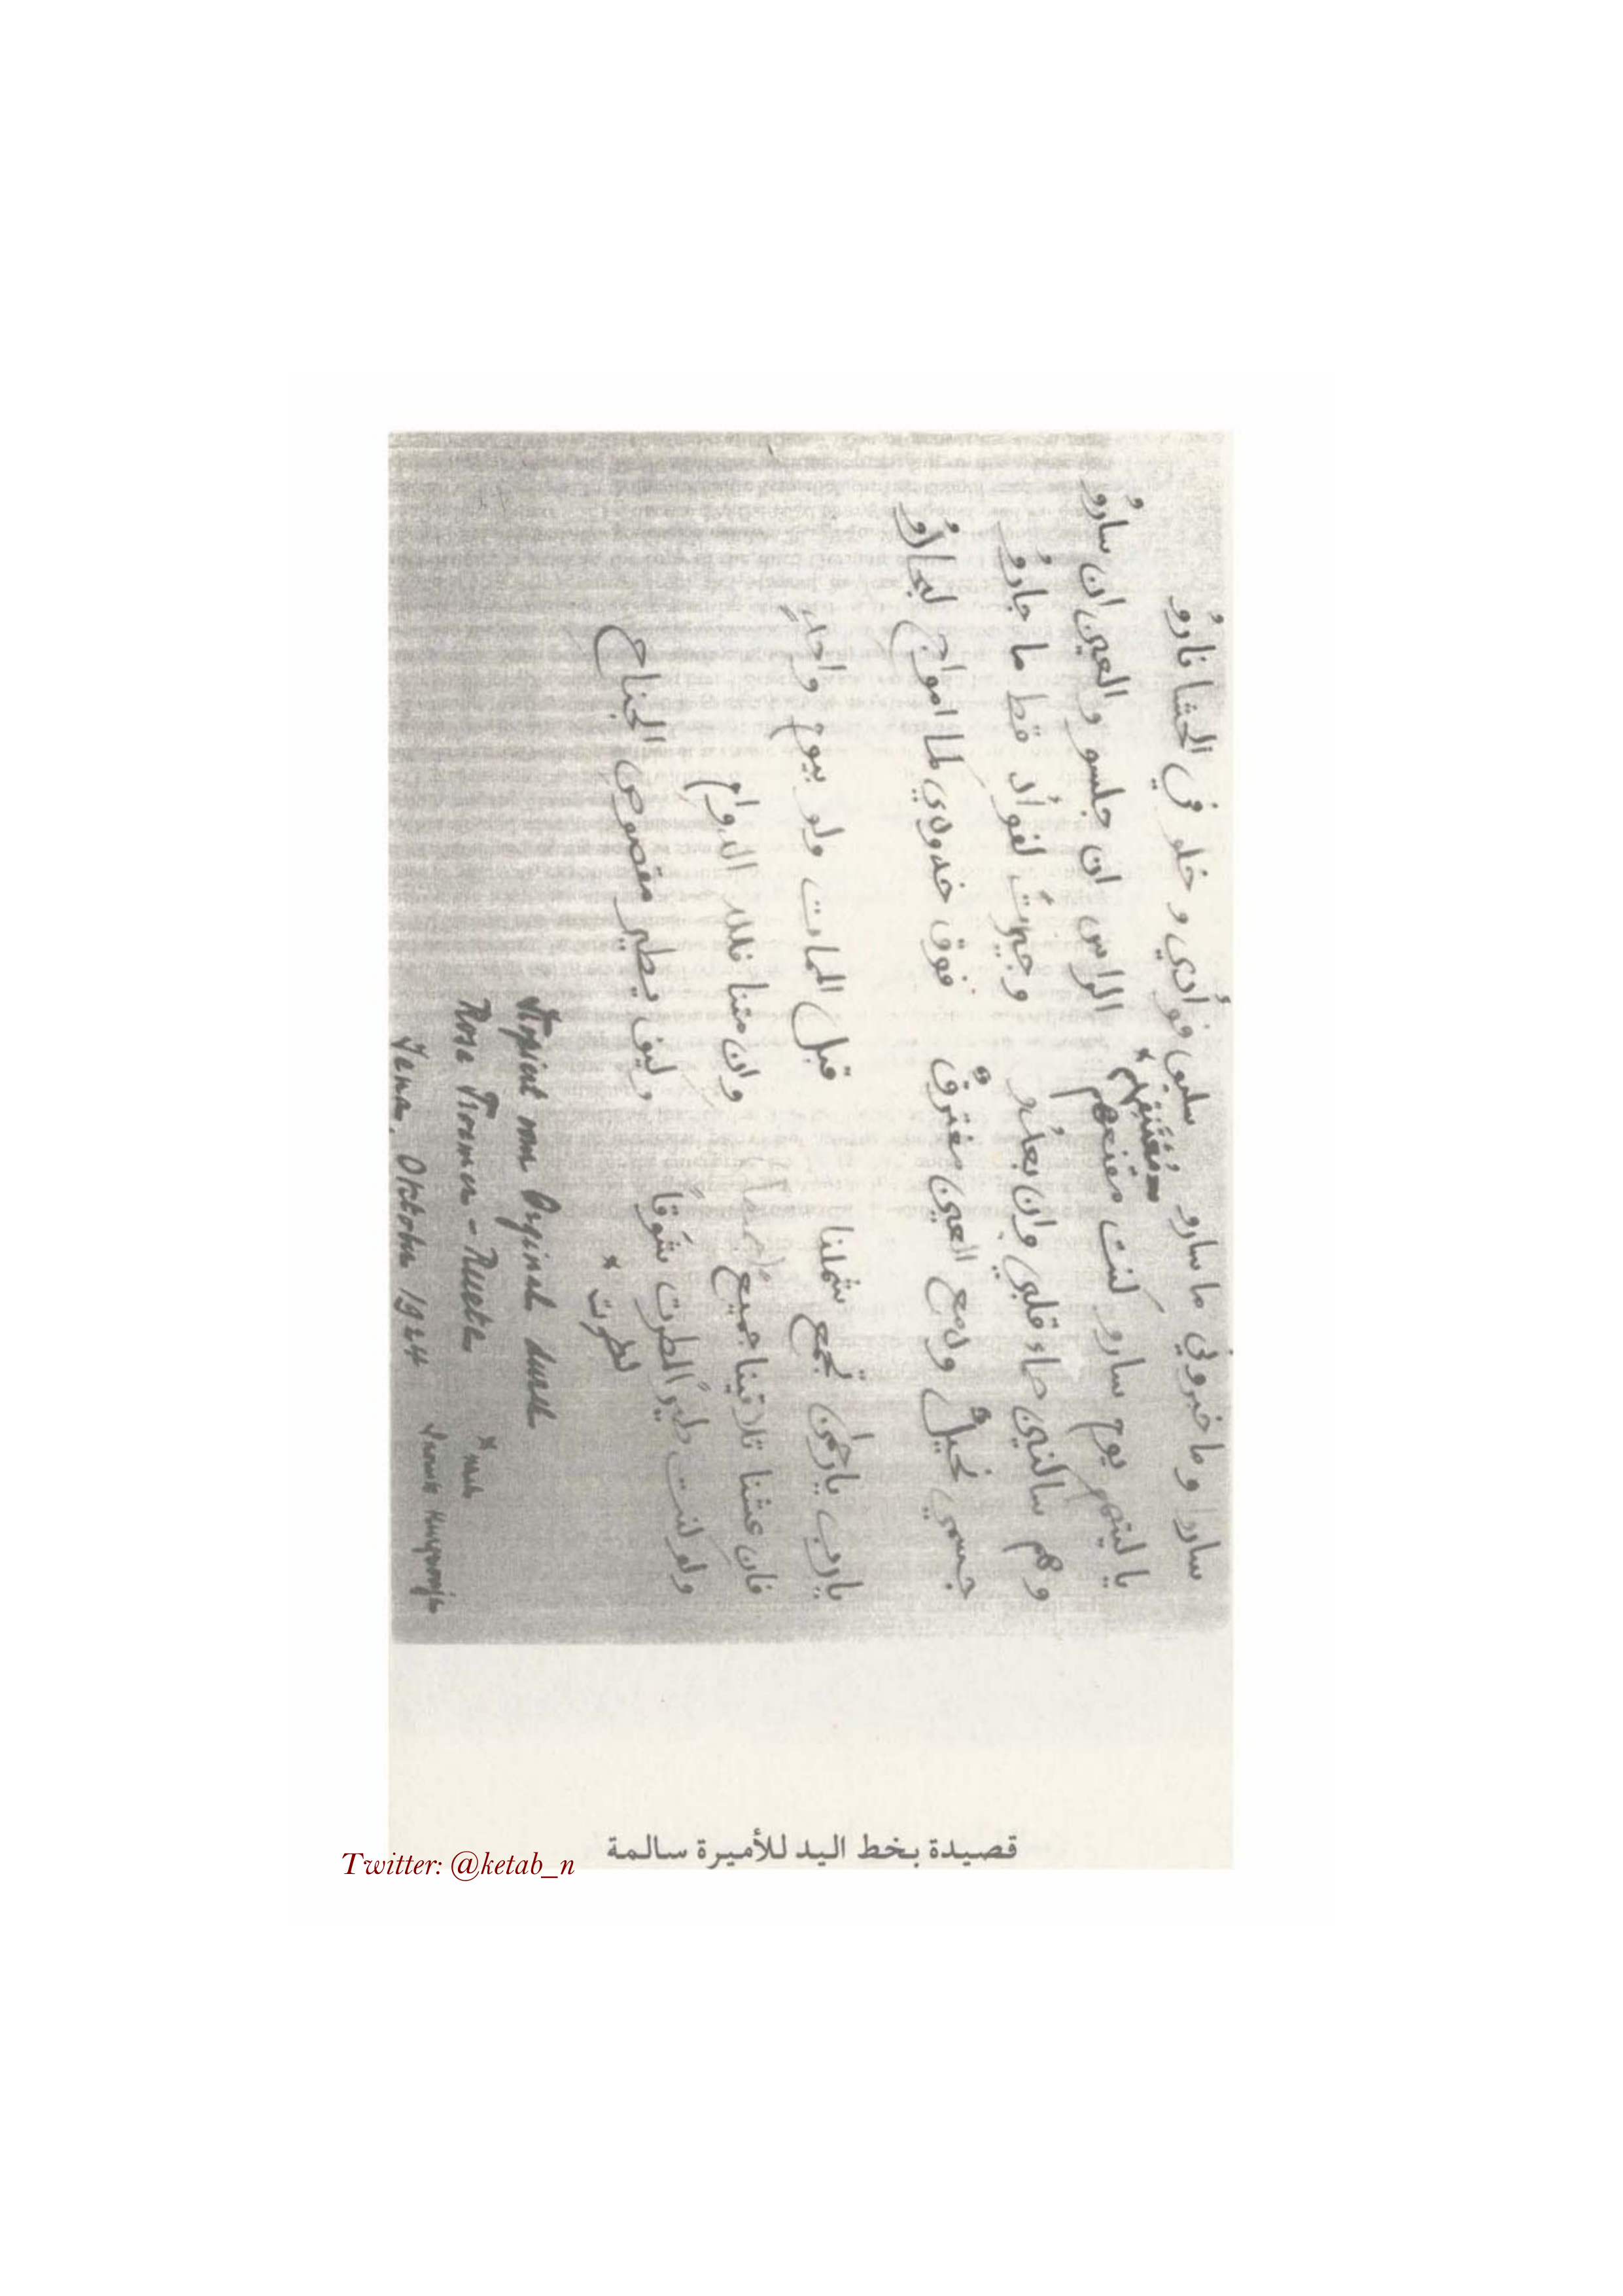 سارو وما خبروني ما سارو سلبوا فوأدي و خلو في الحشا نارو
=مُقَنِّبْهم*
يا ليتهم يوم سارو كنت مقنعهم الراس ان جلسو والعين ان سارو
وهم ساكنين صاء قلبي وان بعدُ وجيرتُ لفوأد قط ما جارو
جسمي نحيلٌ ودمع العين مغترقٌ فوق خدودي كما امواج لبحارو
يارب يارحمن تجمع شملنا قبل الممات ولو بيوم واحدٍ
فان عشنا تلاقينا جميع وان متنا فلله الدوام
ولو كنت طيرً لطرت شوقاً وليس يطير مقصوص الجناح
لطرت *
Kopiert vom Orginal durch
Rose Troemer-Ruete
Jena, Oktober 1924
قصيدة بخط اليد للأميرة سالمة
Twitter: @ketab_n